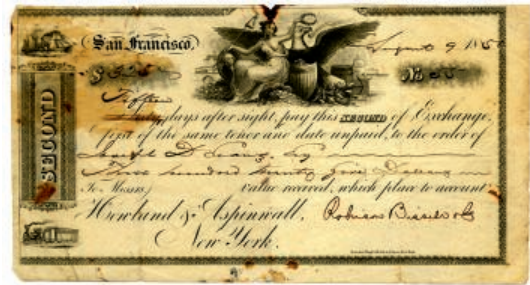 San Francisco, August 9 185
$ 325 No
Fifteen
days after sight, pay this SECOND of Exchange,
first of the same tenor and date unpaid, to the order of
D
Three hundred twenty five Dollars
To Messrs value received, which place to account
Howland & Aspinwall, Robinson Bissell & Co
New York.
SECOND